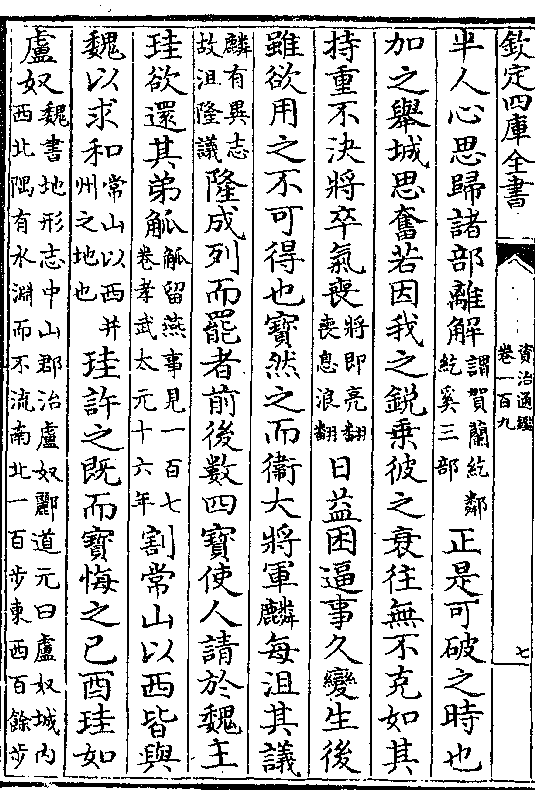 欽定四庫全書
資治通鑑
卷一百九
七
半人心思歸諸部離解謂賀蘭紇鄰紇奚三部正是可破之時也
加之舉城思奮若因我之銳乗彼之衰往無不克如其
持重不決將卒氣喪將即亮翻喪息浪翻日益困逼事久變生後
雖欲用之不可得也寶然之而衞大將軍麟每沮其議
麟有異志故沮隆議隆成列而罷者前後數四寶使人請於魏主
珪欲還其弟觚觚留燕事見一百七卷孝武太元十六年割常山以西皆與
魏以求和常山以西并州之地也珪許之既而寶悔之己酉珪如
盧奴魏書地形志中山郡治盧奴酈道元曰盧奴城内西北隅有水淵而不流南北一百步東西百餘步